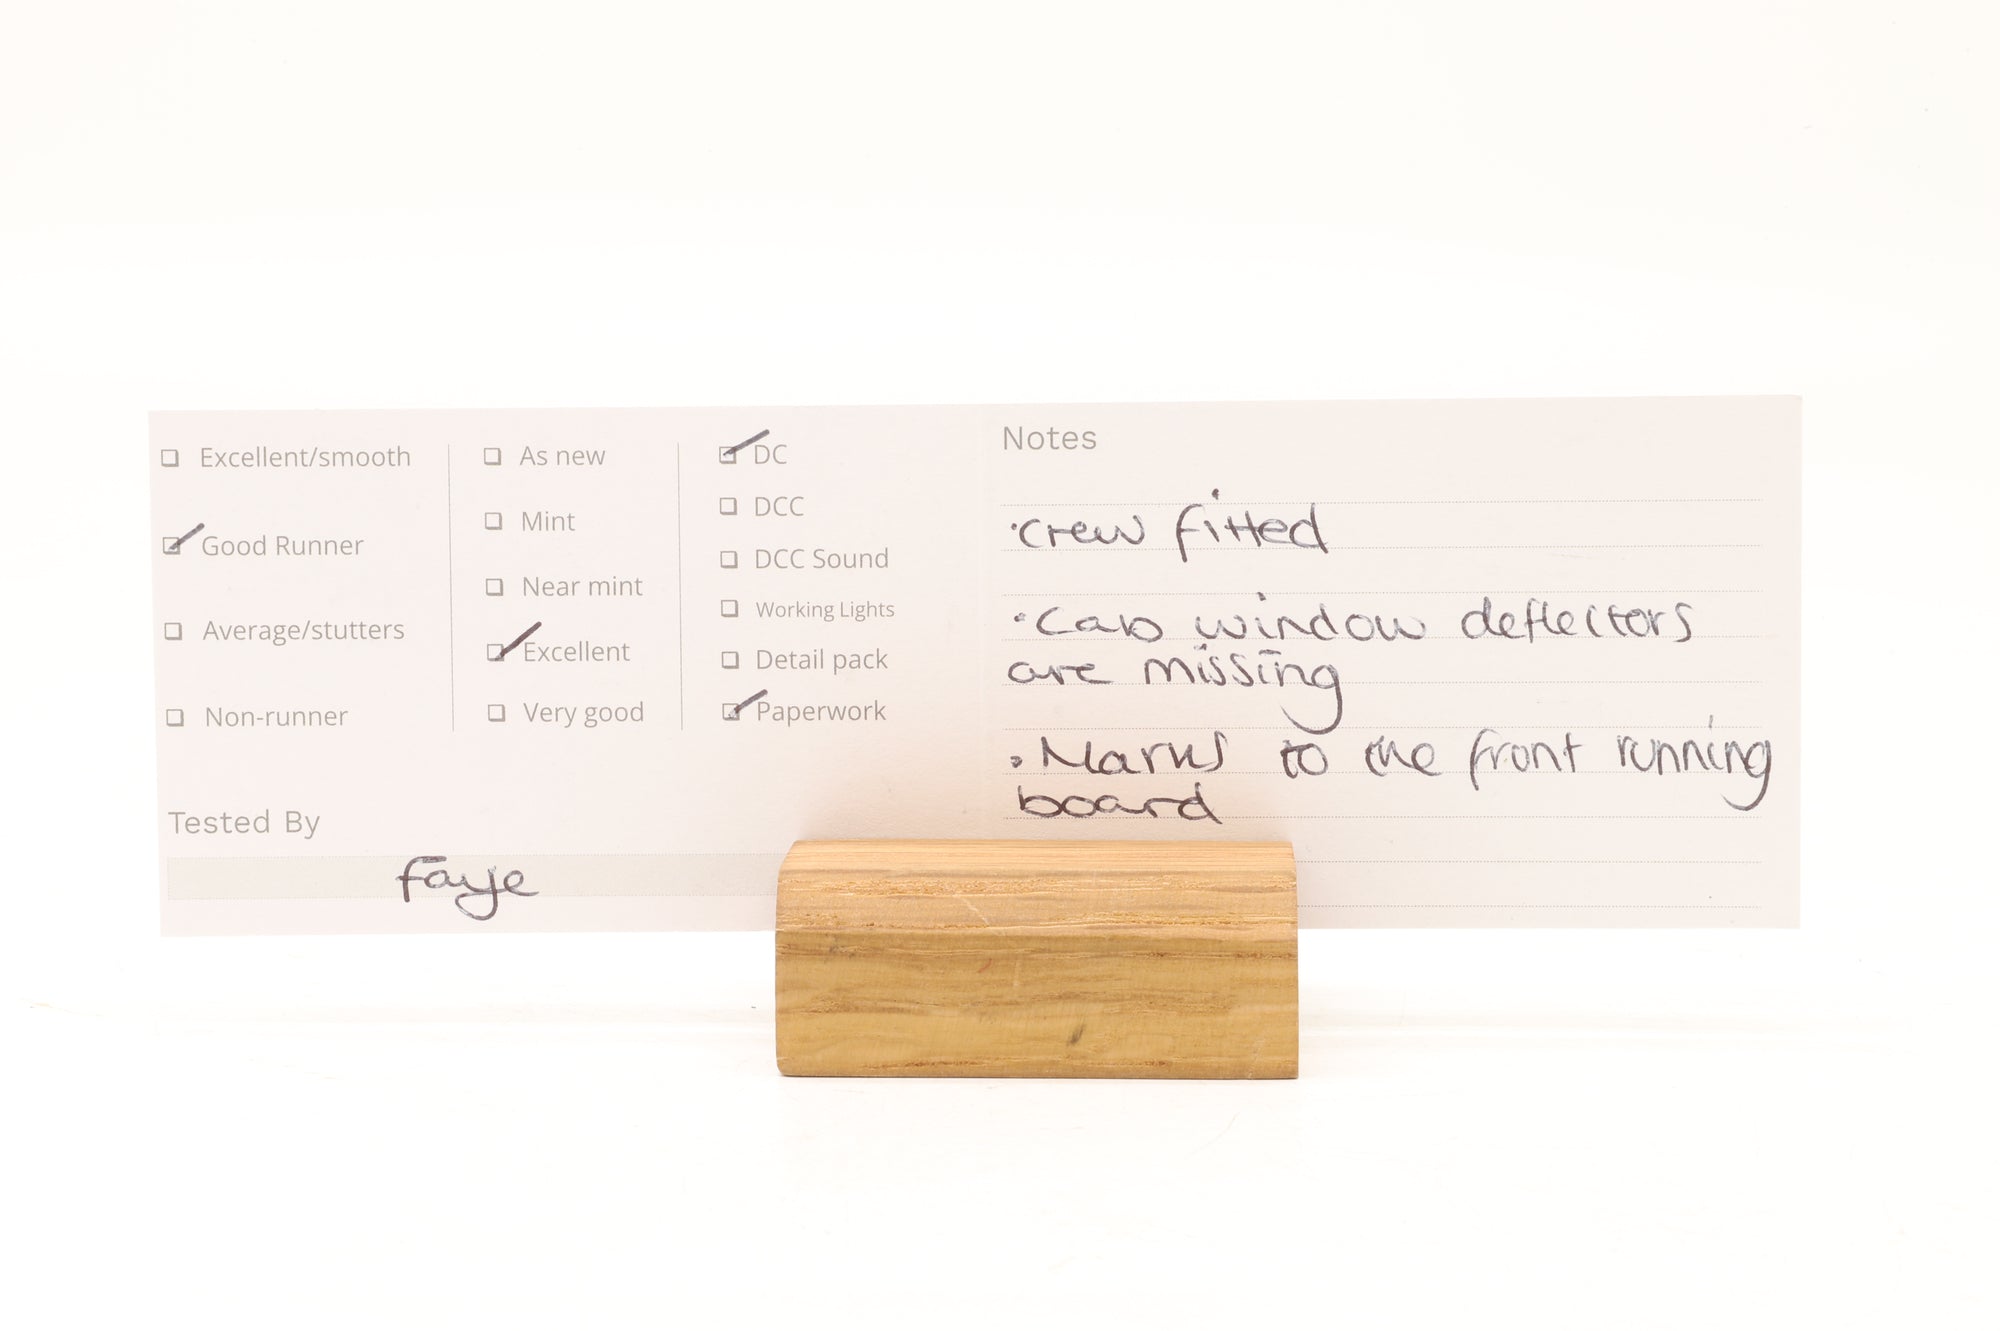 ☐ Excellent/smooth
☑ Good Runner
☐ Average/stutters
☐ Non-runner
☐ As new
☐ Mint
☐ Near mint
☑ Excellent
☐ Very good
☑ DC
☐ DCC
☐ DCC Sound
☐ Working Lights
☐ Detail pack
☑ Paperwork
Tested By
Faye
Notes
·Crew fitted
·Cab window deflectors
are missing
·Marks to the front running
board